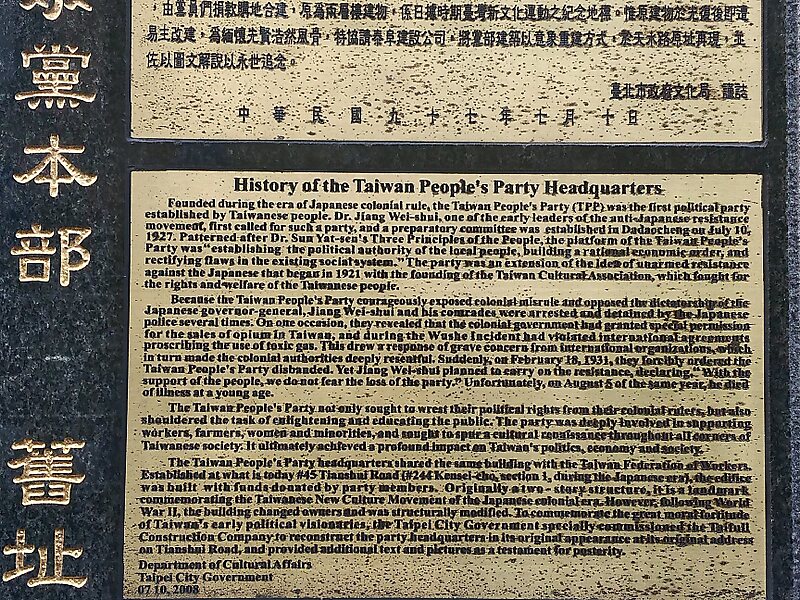 黨本部
舊址
，由黨員們捐款購地合建，原為兩層樓建物，係日據時期臺灣新文化運動之紀念地標。惟原建物於光復後即遭
易主改建，為緬懷先賢浩然風骨，特協請泰阜建設公司，將黨部建築以意象重建方式，於天水路原址再現，並
佐以圖文解說以永世追念。
臺北市政府文化局 謹誌
中華民國九十七年七月十日
History of the Taiwan People's Party Headquarters
Founded during the era of Japanese colonial rule, the Taiwan People's Party (TPP) was the first political party
established by Taiwanese people. Dr. Jiang Wei-shui, one of the early leaders of the anti-Japanese resistance
movement, first called for such a party, and a preparatory committee was established in Dadaocheng on July 10,
1927. Patterned after Dr. Sun Yat-sen's Three Principles of the People, the platform of the Taiwan People's
Party was "establishing the political authority of the local people, building a rational economic order, and
rectifying flaws in the existing social system." The party was an extension of the idea of unarmed resistance
against the Japanese that began in 1921 with the founding of the Taiwan Cultural Association, which fought for
the rights and welfare of the Taiwanese people.
Because the Taiwan People's Party courageously exposed colonial misrule and opposed the dictatorship of the
Japanese governor-general, Jiang Wei-shui and his comrades were arrested and detained by the Japanese
police several times. On one occasion, they revealed that the colonial government had granted special permission
for the sales of opium in Taiwan, and during the Wushe Incident had violated international agreements
proscribing the use of toxic gas. This drew a response of grave concern from international organizations, which
in turn made the colonial authorities deeply resentful. Suddenly, on February 18, 1931, they forcibly ordered the
Taiwan People's Party disbanded. Yet Jiang Wei-shui planned to carry on the resistance, declaring, "With the
support of the people, we do not fear the loss of the party." Unfortunately, on August 5 of the same year, he died
of illness at a young age.
The Taiwan People's Party not only sought to wrest their political rights from their colonial rulers, but also
shouldered the task of enlightening and educating the public. The party was deeply involved in supporting
workers, farmers, women and minorities, and sought to spur a cultural renaissance throughout all corners of
Taiwanese society. It ultimately achieved a profound impact on Taiwan's politics, economy and society.
The Taiwan People's Party headquarters shared the same building with the Taiwan Federation of Workers.
Established at what is today #45 Tianshui Road (#244 Kensei-cho, section 1, during the Japanese era), the edifice
was built with funds donated by party members. Originally a two-story structure, it is a landmark
commemorating the Taiwanese New Culture Movement of the Japanese colonial era. However, following World
War II, the building changed owners and was structurally modified. To commemorate the great moral fortitude
of Taiwan's early political visionaries, the Taipei City Government specially commissioned the Taifull
Construction Company to reconstruct the party headquarters in its original appearance at its original address
on Tianshui Road, and provided additional text and pictures as a testament for posterity.
Department of Cultural Affairs
Taipei City Government
07 10, 2008